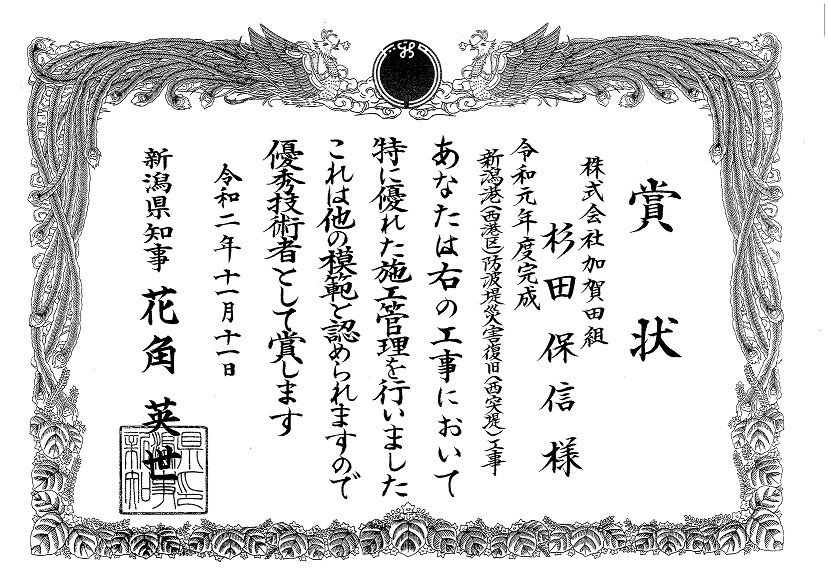 賞状
株式会社加賀田組
杉田保信様
令和元年度完成
新潟港(西港区)防波堤災害復旧(西突堤)工事
あなたは右の工事において
特に優れた施工管理を行いました
これは他の模範と認められますので
優秀技術者として賞します
令和二年十一月十一日
新潟県知事 花角英世